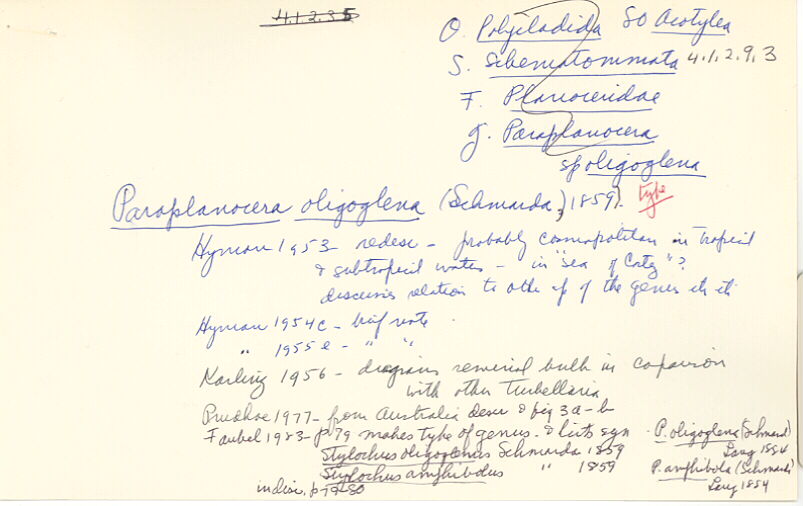 4.1.2.3.5
O. Polycladida SO Acotylea
S. Schematommata 4.1.2.9.3
F. Planoceridae
G. Paraplanocera
sp oligoglena
Paraplanocera oligoglena (Schmarda, 1859) type
Hyman 1953 - redesc - probably cosmopolitan in tropical
& subtropical waters - in "sea of Cortez"?
discusses relation to other sp of the genus
Hyman 1954c - brief note
" 1955e - " "
Karling 1956 - diagrams seminal bulb in comparison
with other Turbellaria
Prudhoe 1977 - from Australia descr & fig 3a-b
Faubel 1983 - p 79 makes type of genus. & lists syn P. oligoglena (Schmard)
Stylochus oligoglenus Schmarda 1859 Lang 1884
Stylochus amphibolus " 1859 P. amphibola (Schmarda)
in disc. p 79-80 Lang 1884